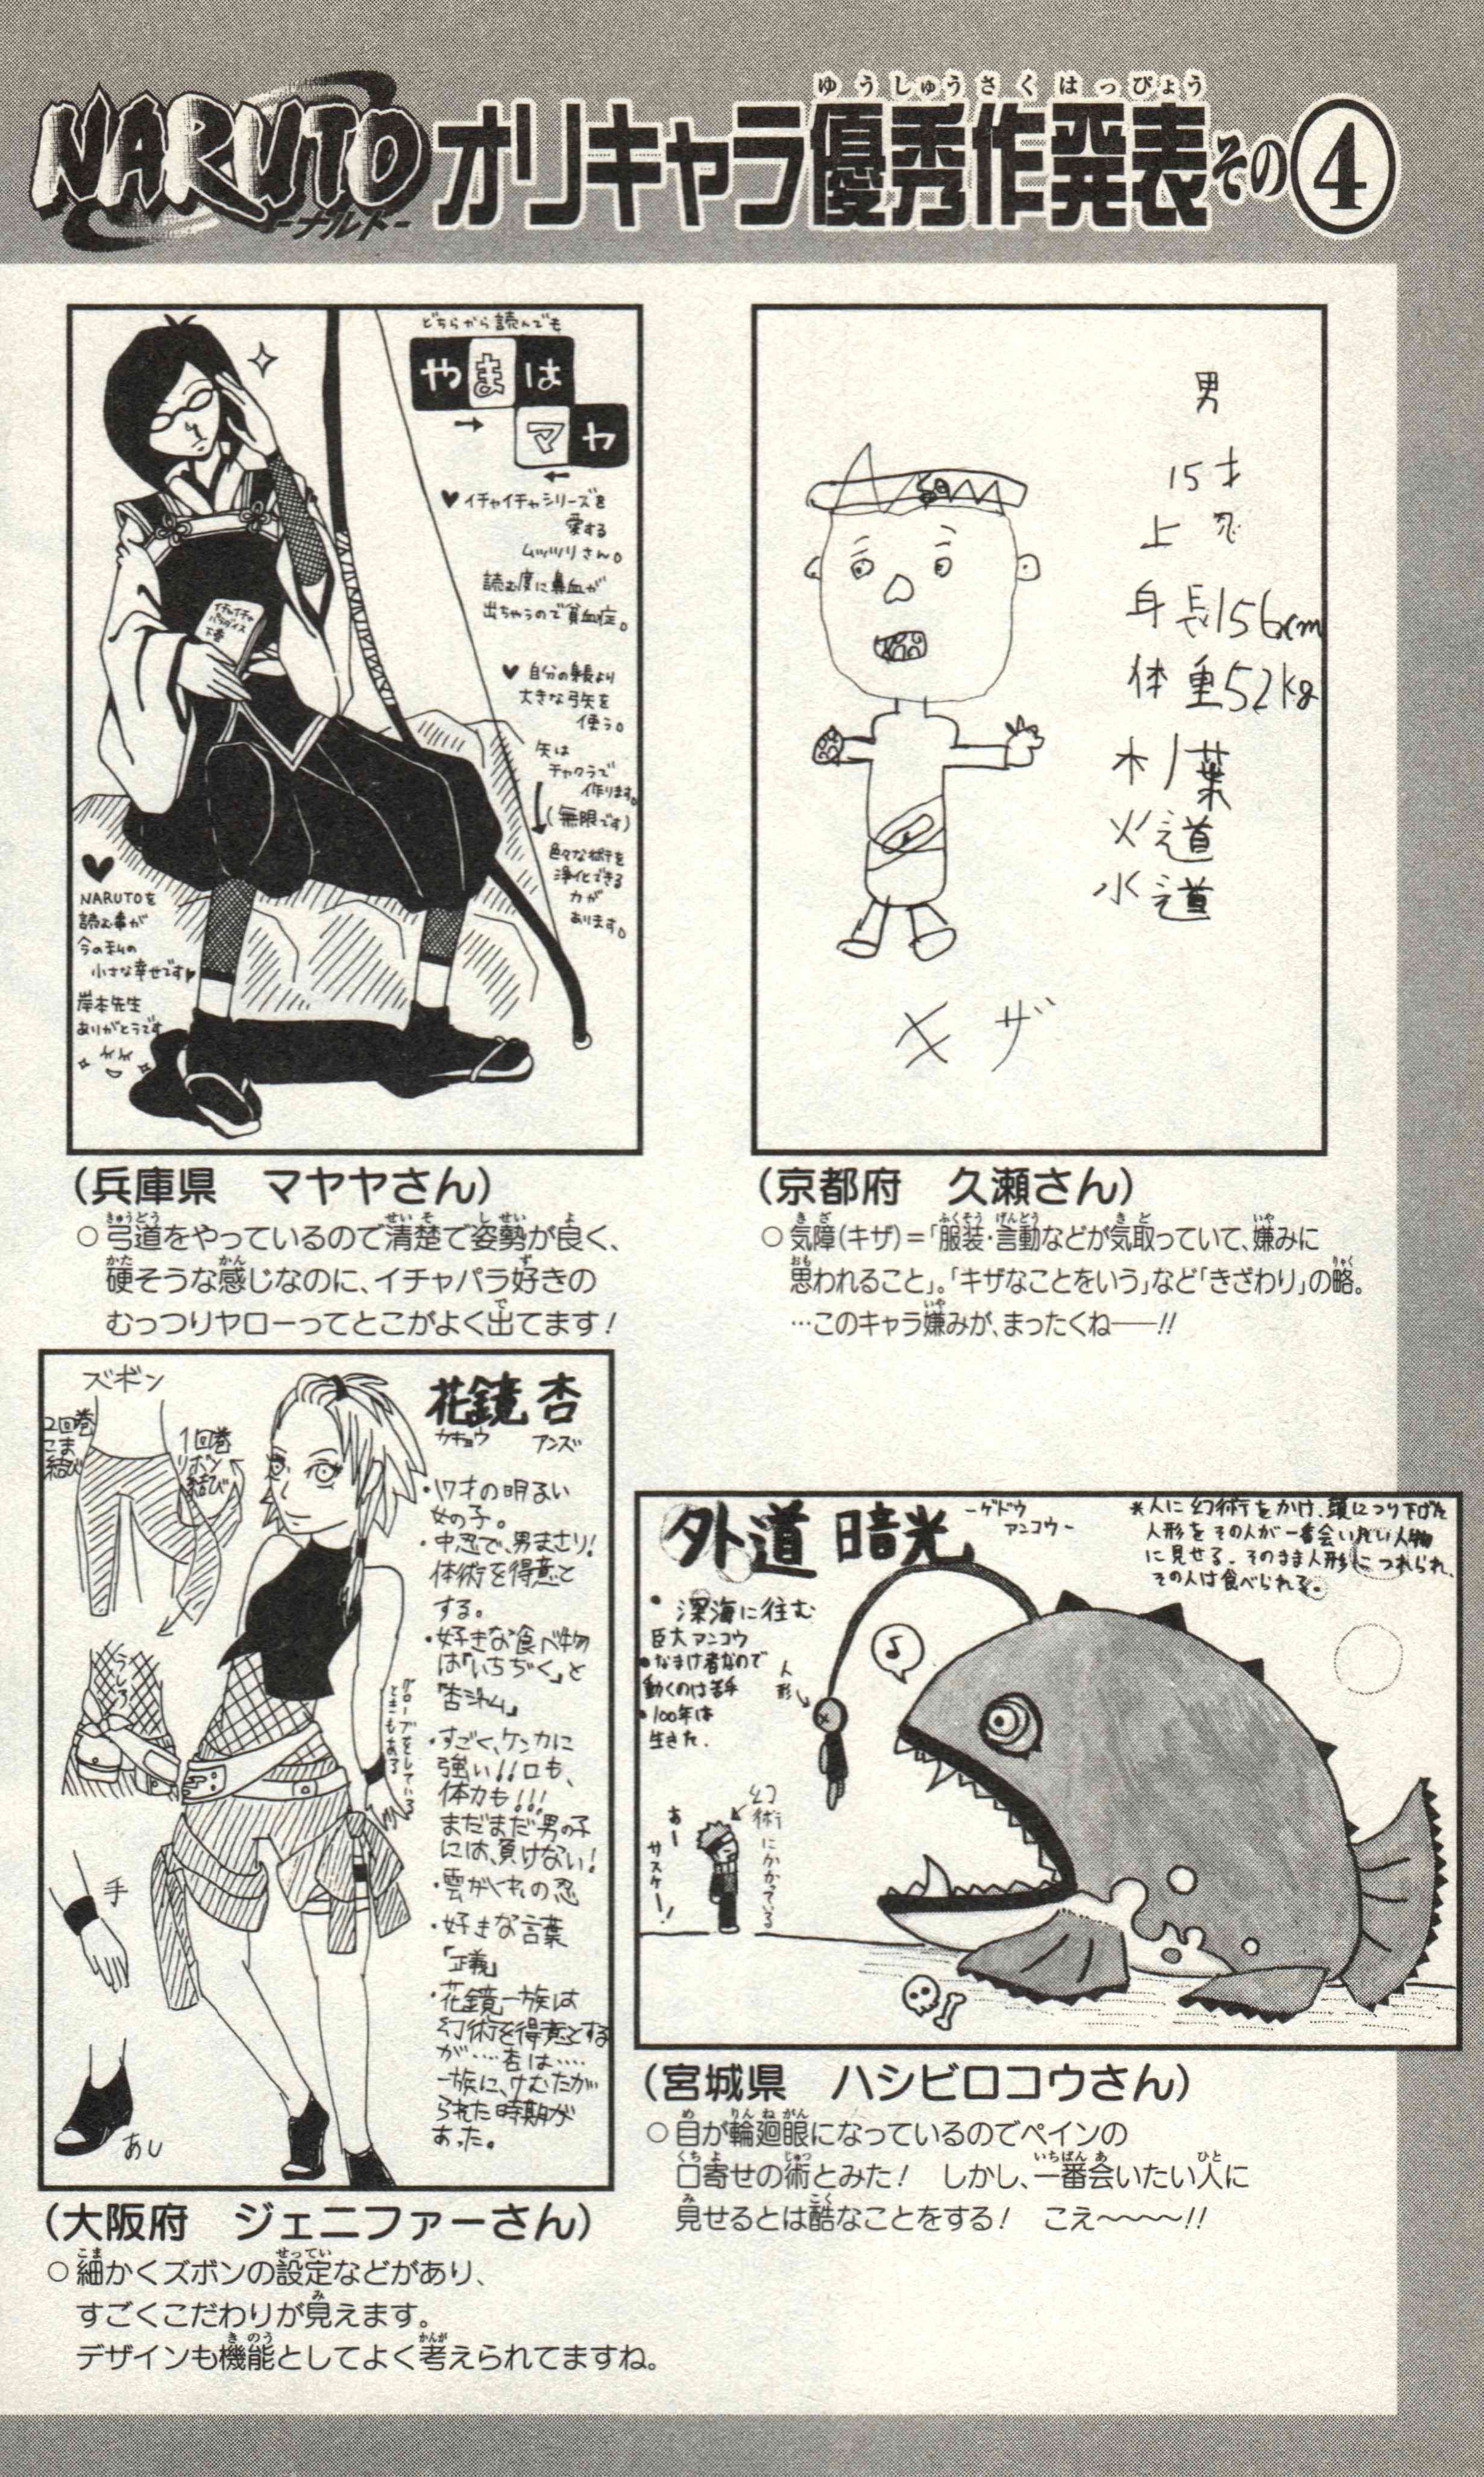 NARUTO
ーナルトー
オリキャラ優秀作発表その④
ゆうしゅうさくはっぴょう
どちらから読んでも
やまは
マヤ
♥イチャイチャシリーズを
愛する
ムッツリさん。
読む度に鼻血が
出ちゃうので貧血症。
♥自分の身長より
大きな弓矢を
使う。
矢は
チャクラで
作ります。
(無限です)
色々な術を
浄化できる
力が
あります。
イチャイチャ
パラダイス
下巻
NARUTOを
読む事が
今の私の
小さな幸せです♥
岸本先生
ありがとうです
(兵庫県 マヤヤさん)
○弓道をやっているので清楚で姿勢が良く、
硬そうな感じなのに、イチャパラ好きの
むっつりヤローってとこがよく出てます!
男
15才
上忍
身長156cm
体重52kg
木ノ葉
火遁
水遁
キザ
(京都府 久瀬さん)
○気障(キザ)=「服装・言動などが気取っていて、嫌みに
思われること」。「キザなことをいう」など「きざわり」の略。
…このキャラ嫌みが、まったくね──!!
ズボン
2回巻
こま
結び
1回巻
リボン
結び
うしろ
手
あし
グローブをしている
ときもある
花鏡 杏
カキョウ アンズ
・17才の明るい
女の子。
・中忍で、男まさり!
体術を得意と
する。
・好きな食べ物
は「いちぢく」と
「杏ジャム」
・すごく、ケンカに
強い!!口も、
体力も!!!
まだまだ男の子
には、負けない!
・雲がくれの忍
・好きな言葉
「正義」
・花鏡一族は
幻術を得意とする
が‥‥杏は‥‥
一族に、けむたが
られた時期が
あった。
(大阪府 ジェニファーさん)
○細かくズボンの設定などがあり、
すごくこだわりが見えます。
デザインも機能としてよく考えられてますね。
外道 暗光
ーゲドウ
アンコウー
*人に幻術をかけ、頭につり下げた
人形をその人が一番会いたい人物
に見せる。そのまま人形につれられ、
その人は食べられる。
・深海に住む
巨大アンコウ
・なまけ者なので
動くのは苦手
・100年は
生きた.
人形
♪
幻術にかかっている
あー
サスケー!
(宮城県 ハシビロコウさん)
○目が輪廻眼になっているのでペインの
口寄せの術とみた! しかし、一番会いたい人に
見せるとは酷なことをする! こえ〜〜〜〜!!